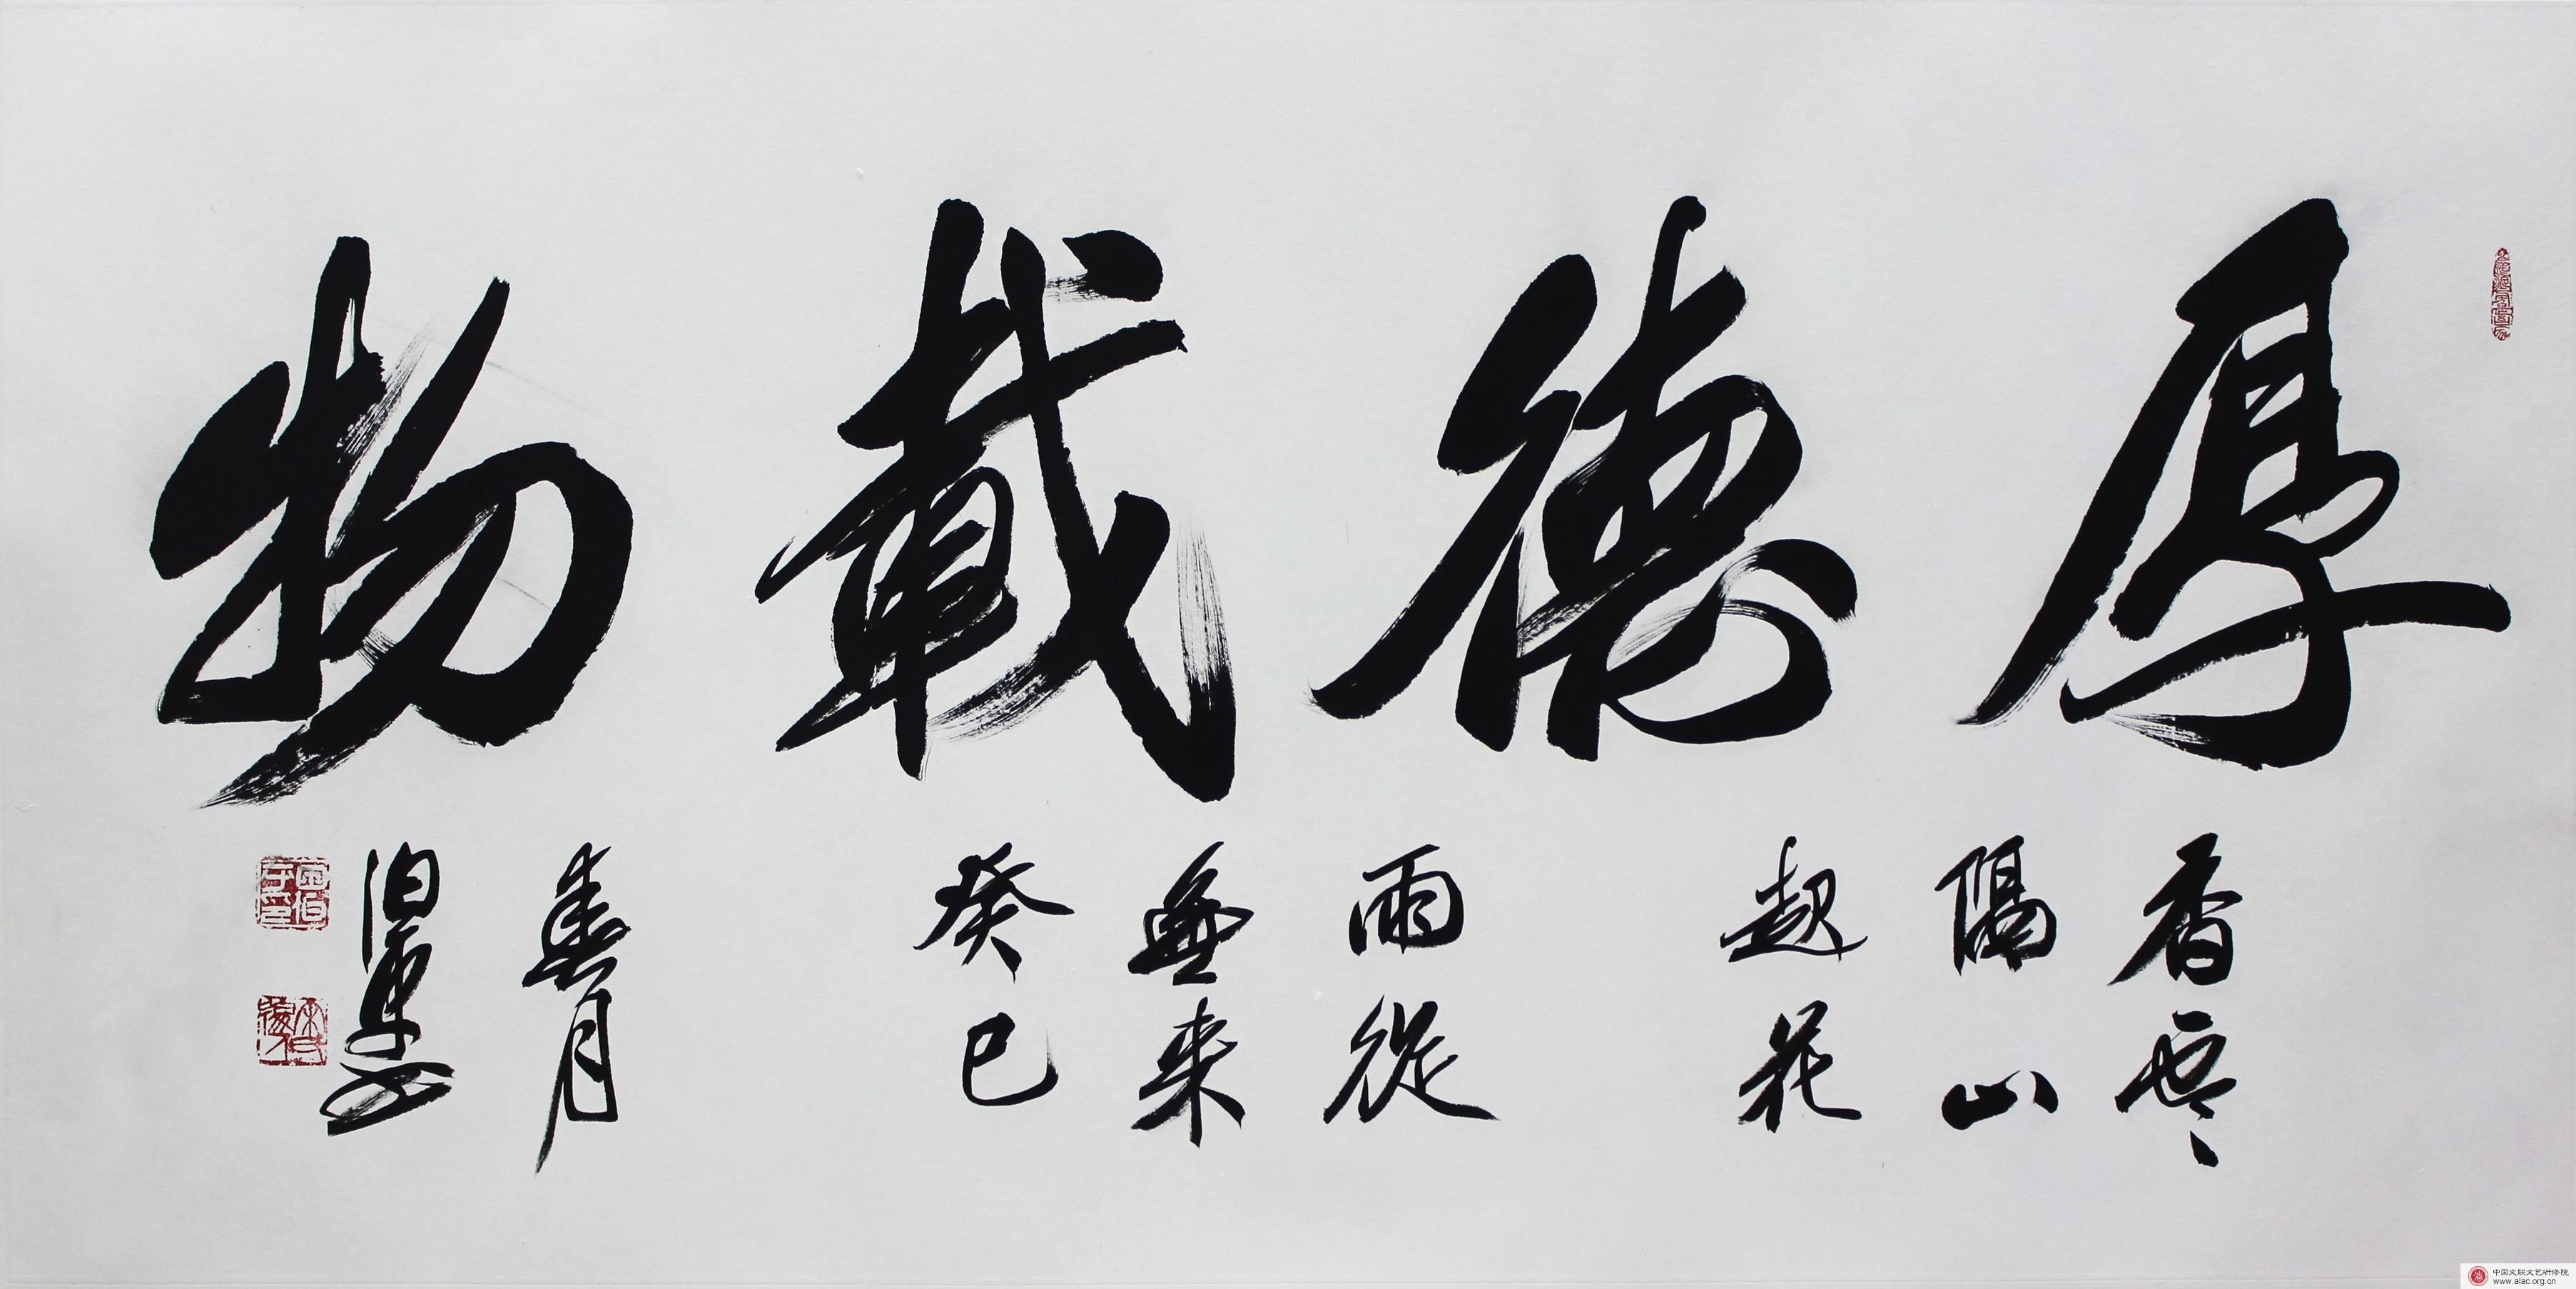 厚德載物
香雲
徧山
起花
雨從
無来
癸巳
春月
中国文联文艺研修院
www.alac.org.cn